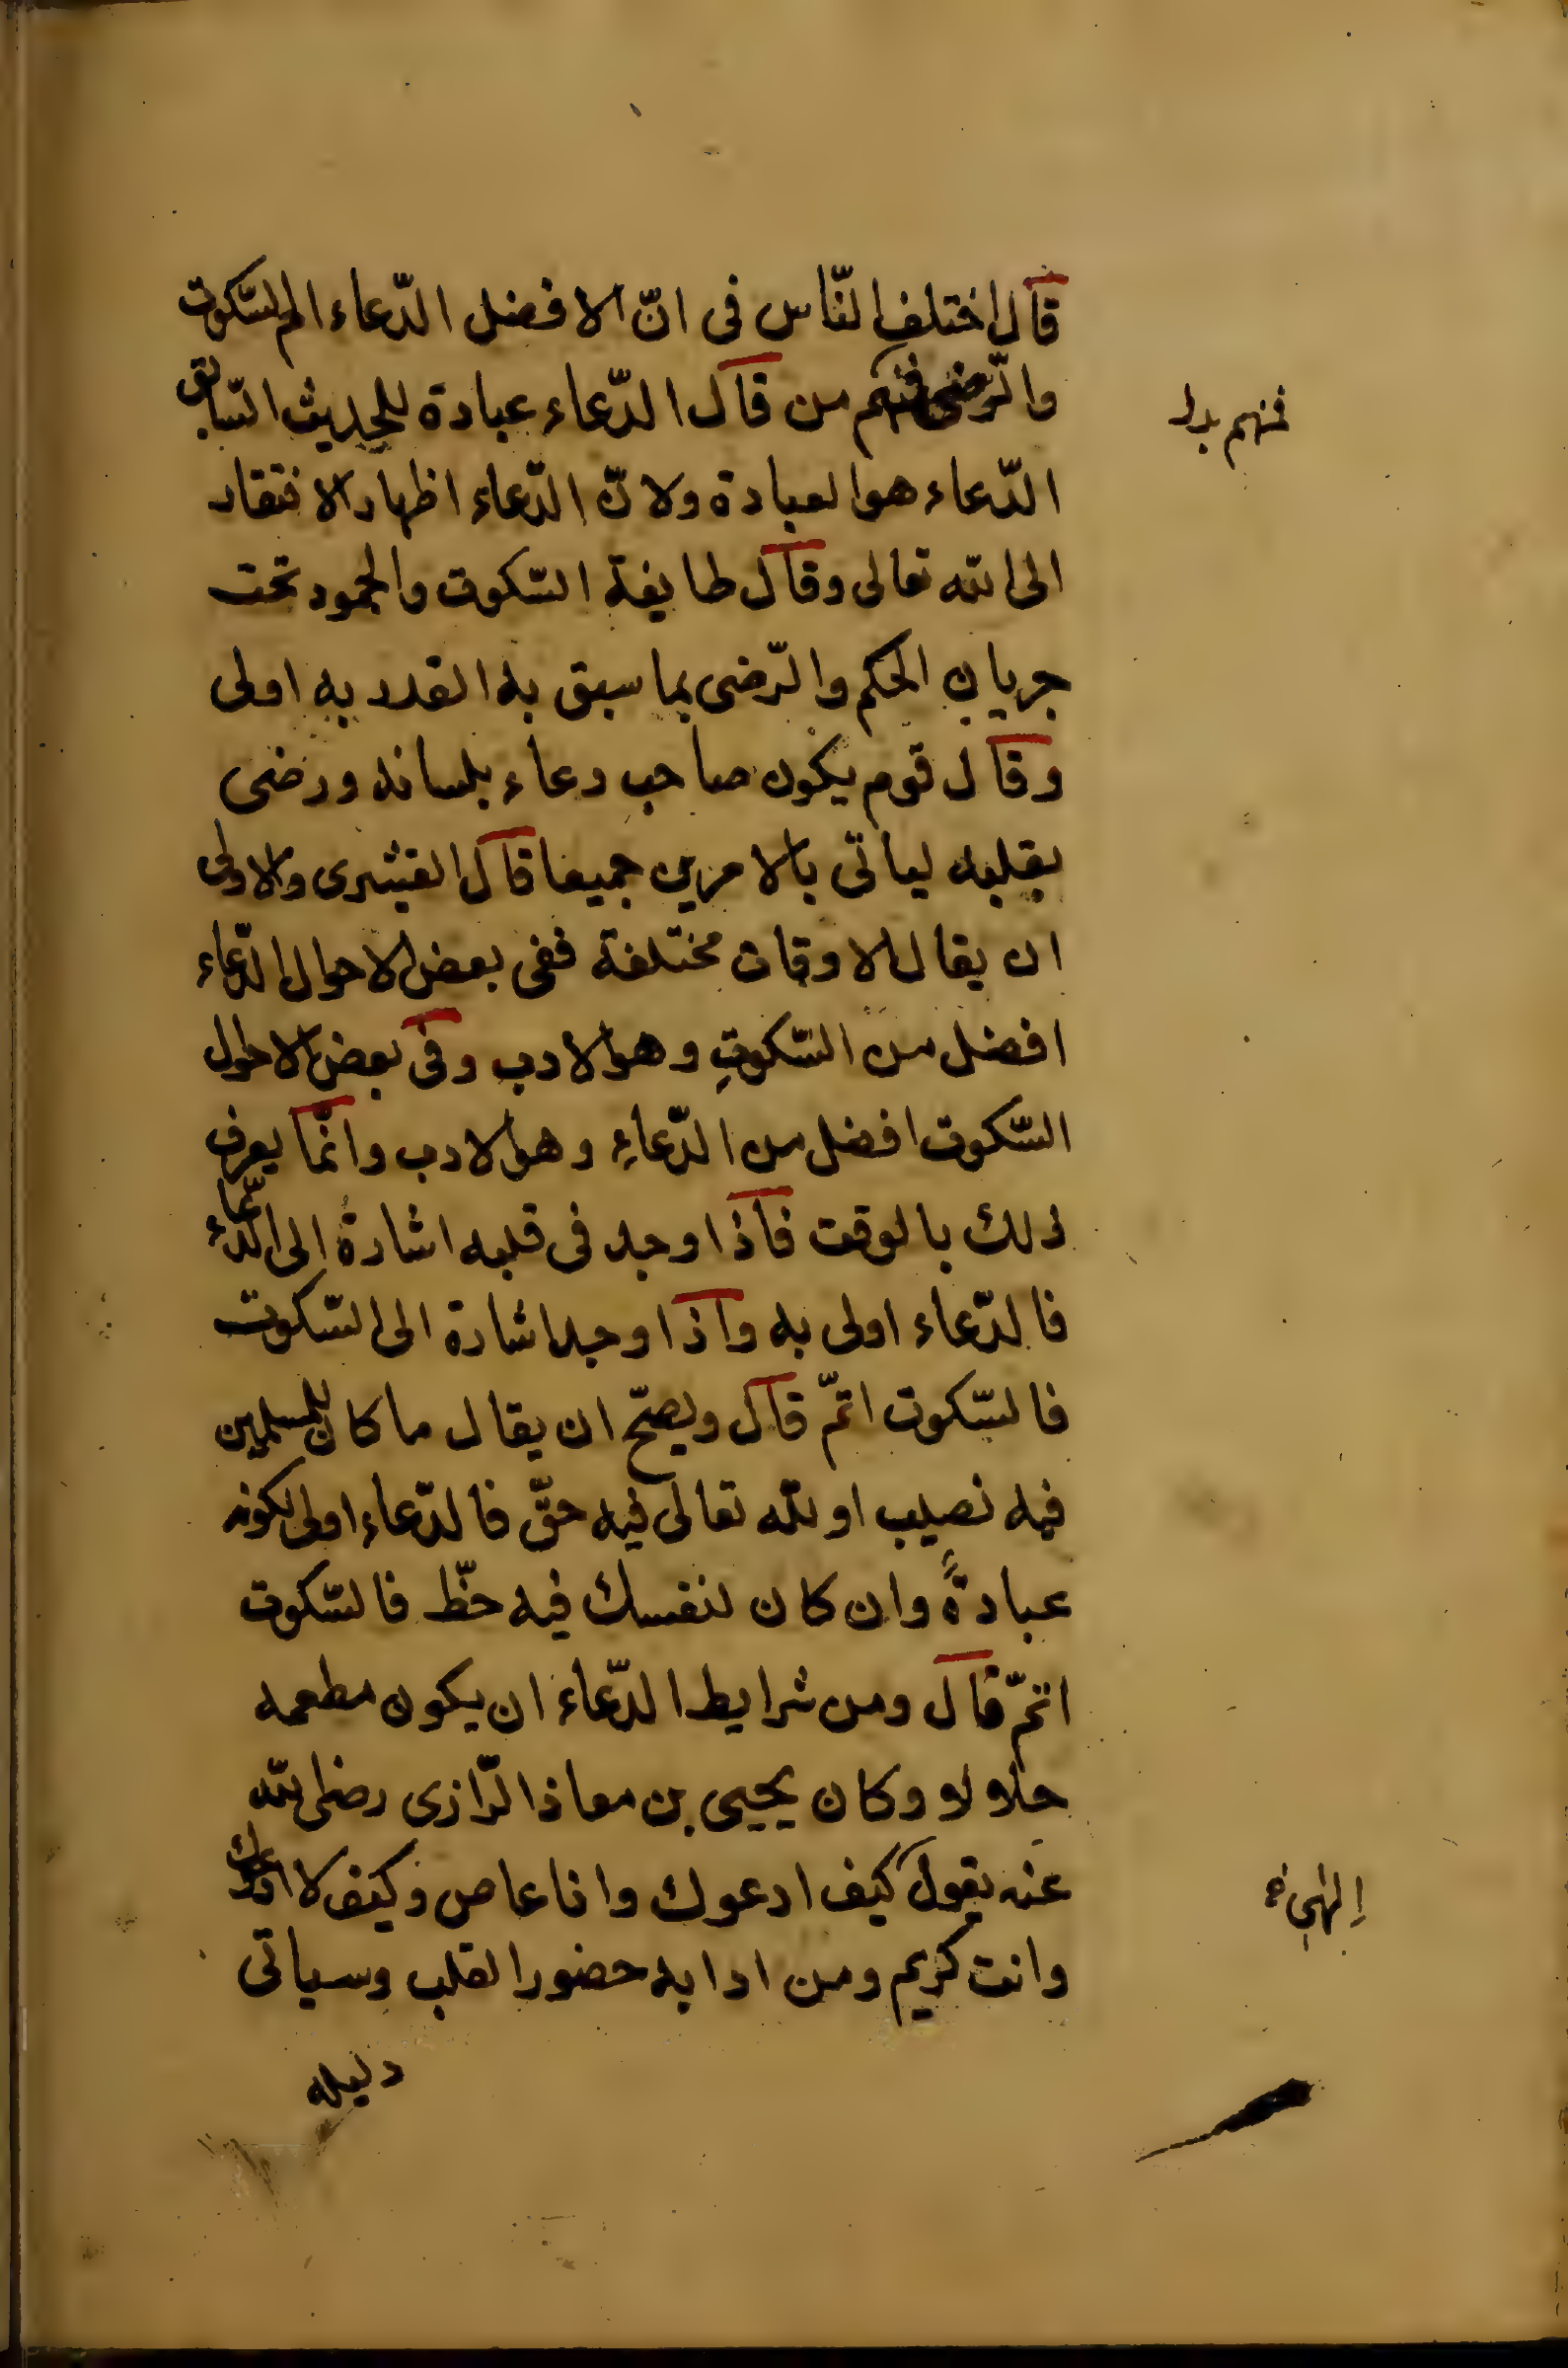 قال اختلف النّاس فى انّ الافضل الدّعاء ام السّكوت
والرّضى فمنهم من قال الدّعاء عبادة للحديث السّابق
فمنهم بدل
الدّعاء هو العبادة ولانّ الدّعاء اظهار الافتقار
الى الله تعالى وقال طايفة السّكوت والجمود تحت
جريان الحكم والرّضى بما سبق به القدر به اولى
وقال قوم يكون صاحب دعاء بلسانه ورضى
بقلبه لياتى بالامرين جميعا قال القشيرى والاولى
ان يقال الاوقات مختلفة ففى بعض الاحوال الدّعاء
افضل من السّكوتِ وهو الادب وفى بعض الاحوال
السّكوت افضل من الدّعاءِ وهو الادب وانّما يعرف
ذلك بالوقت فاذا وجد فى قلبه اشارة الى الدّعاء
فالدّعاء اولى به واذا وجد اشارة الى السّكوت
فالسّكوت اتمّ قال ويصحّ ان يقال ما كان للمسلمين
فيه نصيب او لله تعالى فيه حقّ فالدّعاء اولى لكونه
عبادةً وان كان لنفسك فيه حظّ فالسّكوت
اتمّ قال ومن شرايط الدّعاء ان يكون مطعمه
حلالا وكان يحيى بن معاذ الرّازى رضى الله
عنه يقول كيف ادعوك وانا عاص وكيف لا ادعوك
الهى
وانت كريم ومن ادابه حضور القلب وسياتى
دليله